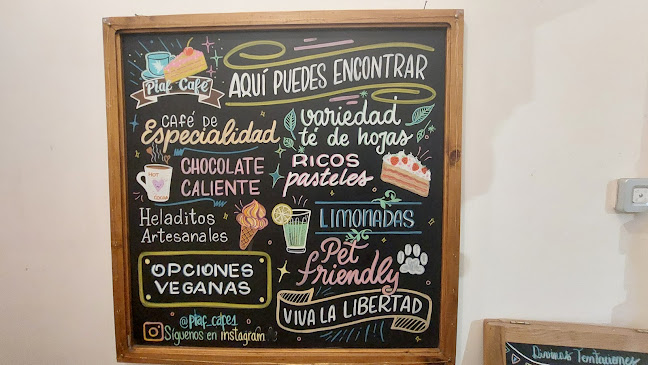 Piaf Café
AQUÍ PUEDES ENCONTRAR
CAFÉ DE
Especialidad
Variedad
té de hojas
HOT
COCOA
CHOCOLATE
CALIENTE
RICOS
pasteles
Heladitos
Artesanales
LIMONADAS
OPCIONES
VEGANAS
Pet
friendly
VIVA LA LIBERTAD
Síguenos en instagram
Divinas Tentaciones